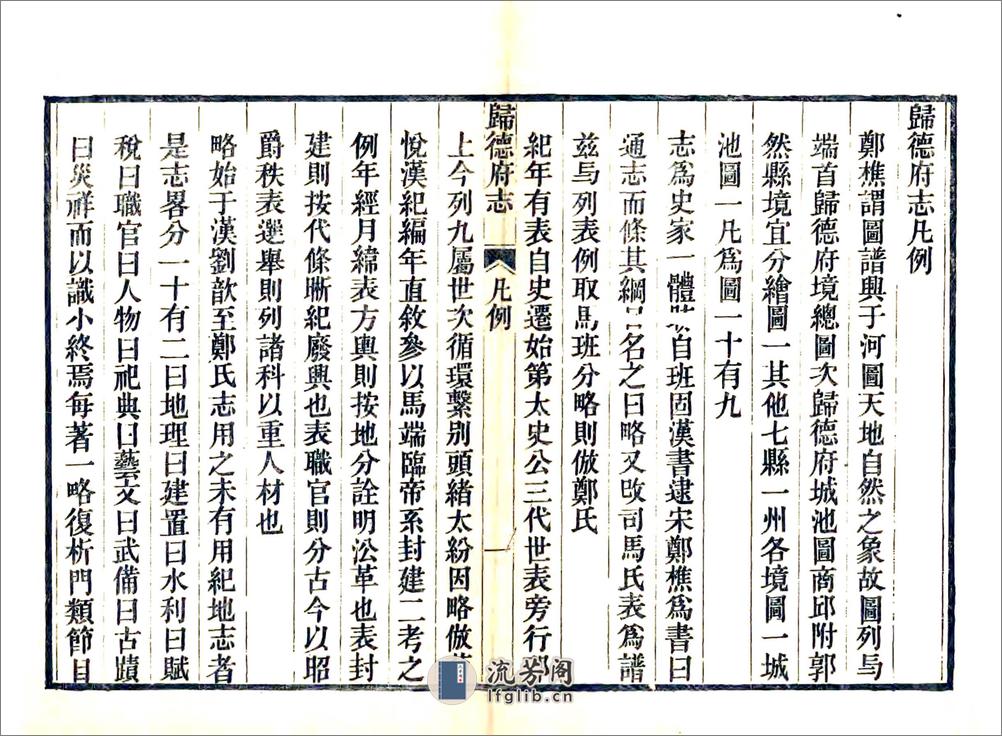 歸德府志凡例
鄭樵謂圖譜興于河圖天地自然之象故圖列焉
端首歸德府境總圖次歸德府城池圖商邱附郭
然縣境宜分繪圖一其他七縣一州各境圖一城
池圖一凡爲圖一十有九
志爲史家一體 自班固漢書逮宋鄭樵爲書曰
通志而條其綱 名之曰略又改司馬氏表爲譜
兹焉列表例取馬班分略則倣鄭氏
紀年有表自史遷始第太史公三代世表旁行
歸德府志 凡例 一
上今列九屬世次循環繫别頭緒太紛因略倣
悅漢紀編年直敘參以馬端臨帝系封建二考之
例年經月緯表方輿則按地分詮明㳂革也表封
建則按代條晰紀廢興也表職官則分古今以昭
爵秩表選舉則列諸科以重人材也
略始于漢劉歆至鄭氏志用之未有用紀地志者
是志畧分一十有二曰地理曰建置曰水利曰賦
稅曰職官曰人物曰祀典曰藝文曰武備曰古蹟
曰災祥而以識小終焉每著一略復析門類節目
流芳阁
lfglib.cn